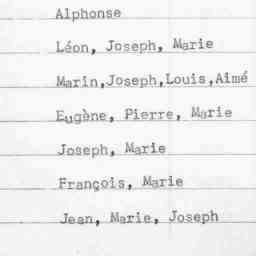 Alphonse
Léon, Joseph, Marie
Marin,Joseph,Louis,Aimé
Eugène, Pierre, Marie
Joseph, Marie
François, Marie
Jean, Marie, Joseph